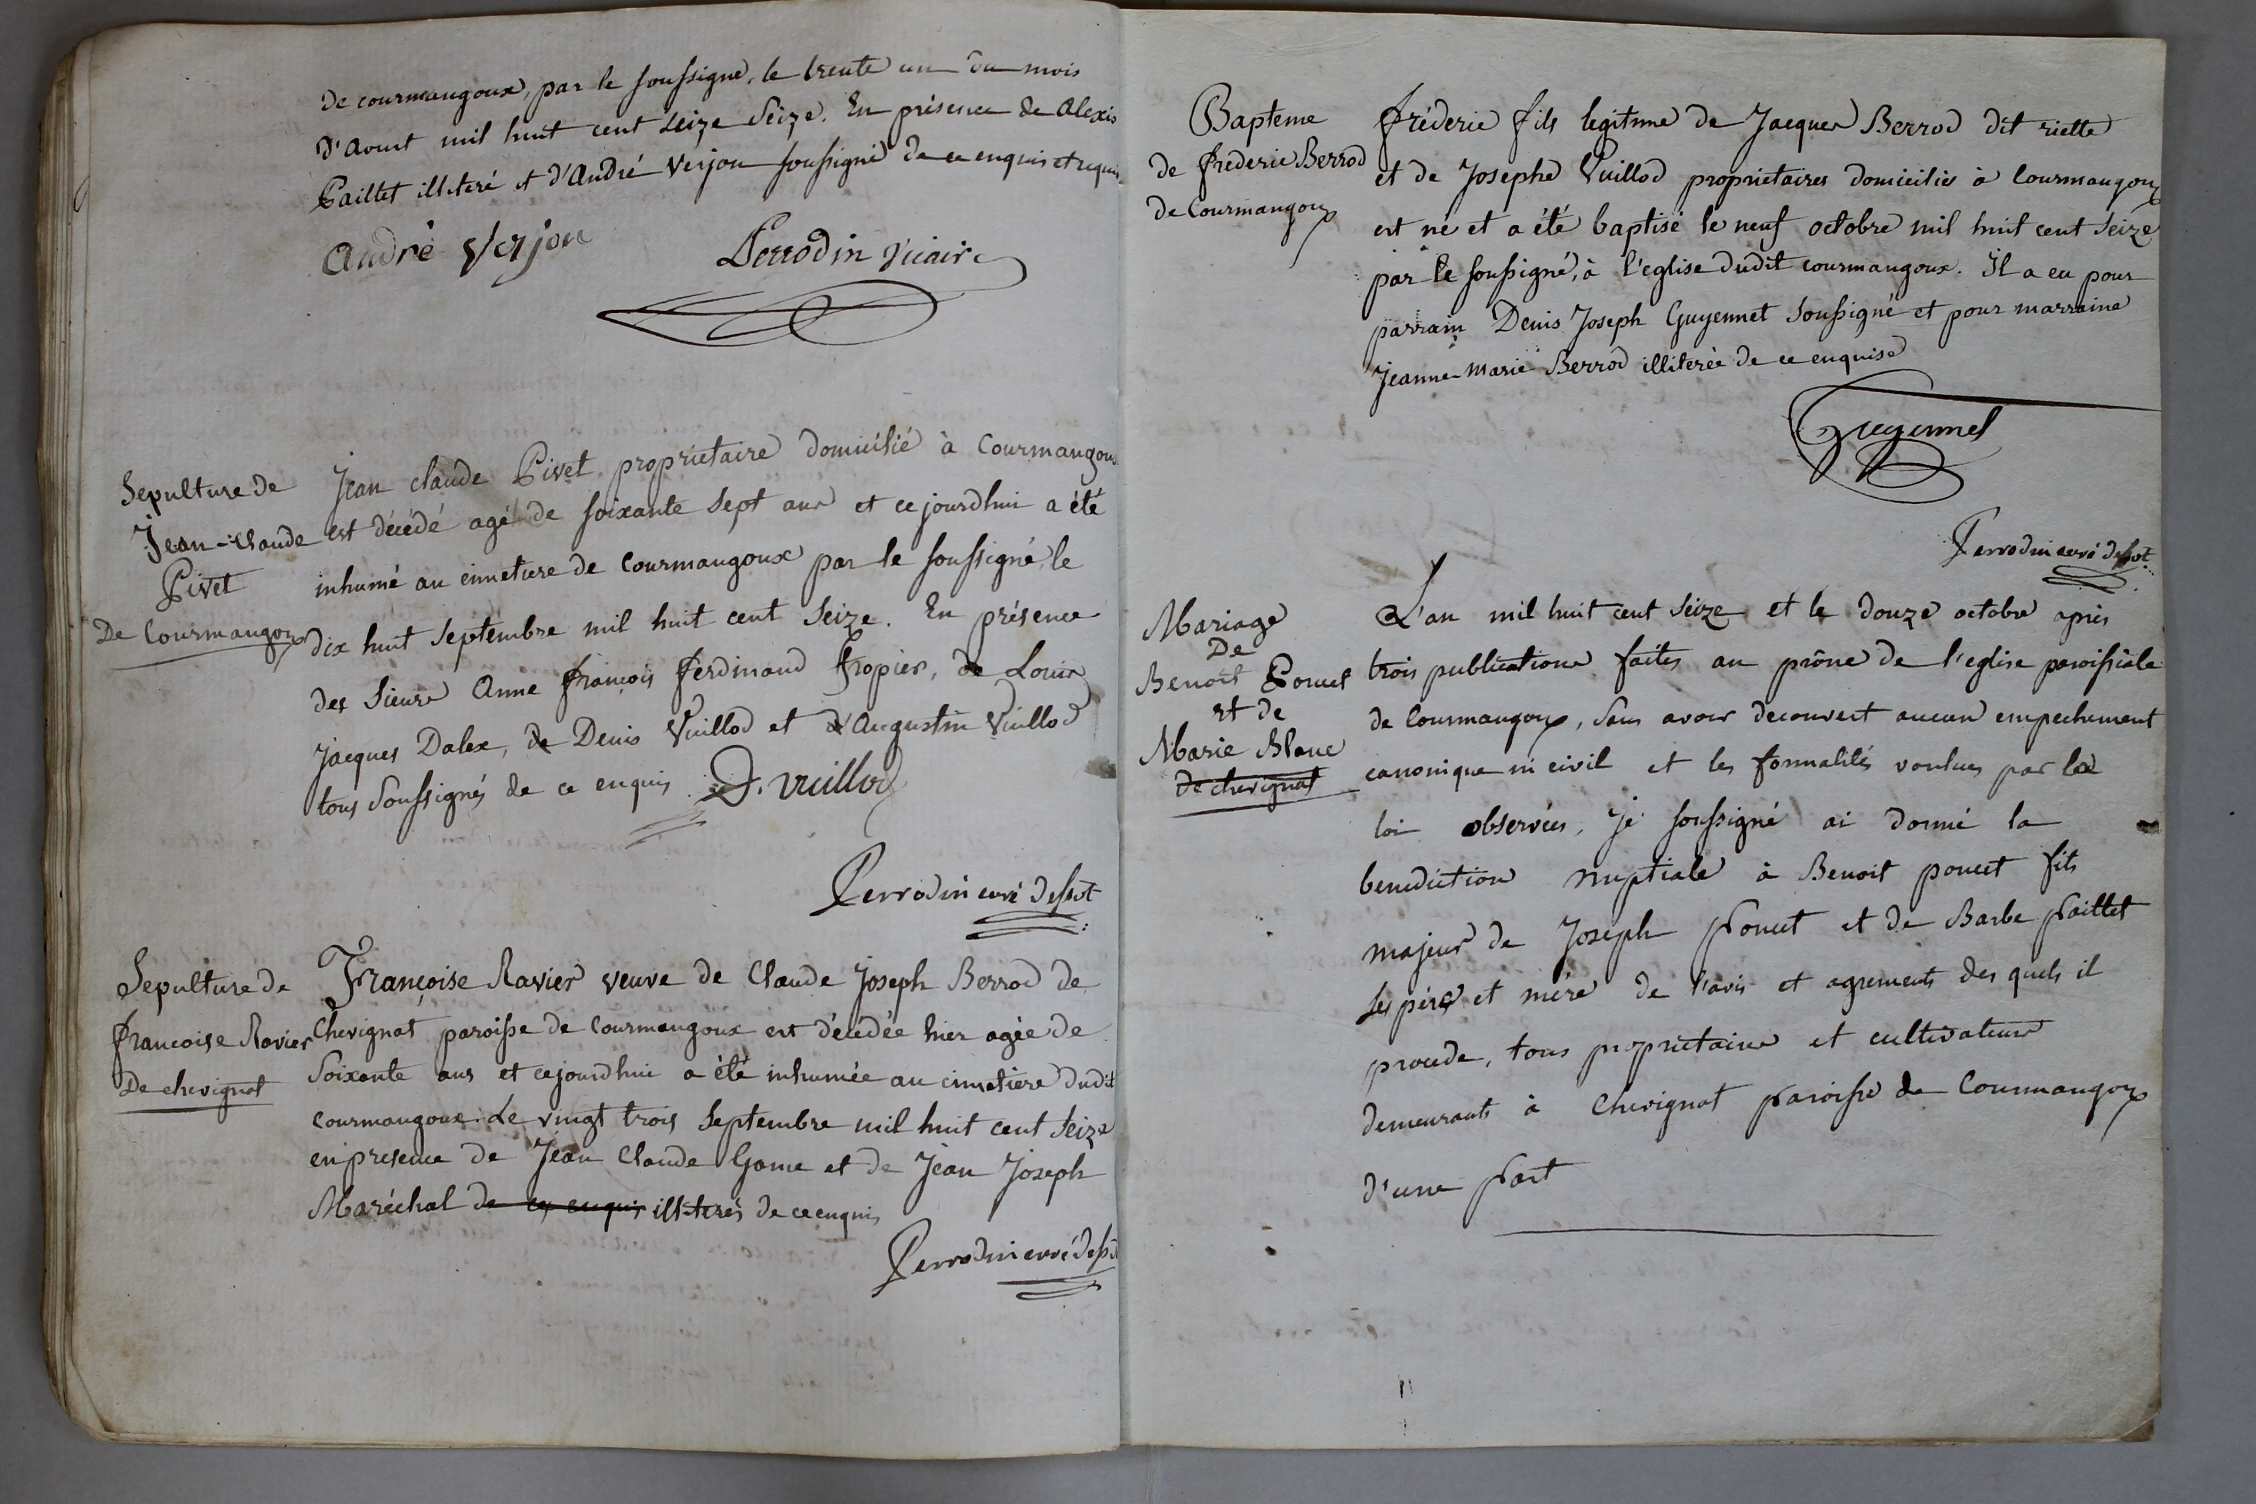 de courmangoux, par le soussigné, le trente un du mois
d'aout mil huit cent seize seize. En présence de Alexis
Paillet illiteré et d'André Verjon soussigné de ce enquis et requis
André Verjon
Perrodin Vicaire
Sepulture de
Jean-Claude
Pivet
De Courmangoux
Jean claude Pivet proprietaire domicilié à Courmangoux
est décédé agé de soixante sept ans et ce jourdhui a été
inhumé au cimetiere de Courmangoux par le soussigné, le
dix huit septembre mil huit cent seize. En présence
des sieurs Anne françois ferdinand tropier, de Louis
Jacques Dalex, de Denis Vuillod et d'Augustin Vuillod
tous soussignés de ce enquis. D. Vuillod
Perrodin curé desst
Sepulture de
francoise Ravier
De chevignat
Françoise Ravier veuve de Claude Joseph Berrod de
Chevignat paroisse de Courmangoux est décédée hier agée de
soixante ans et cejourdhui a été inhumée au cimetiere dudit
courmangoux. Le vingt trois septembre mil huit cent seize
en presence de Jean Claude Game et de Jean Joseph
Maréchal de ce enquis illiterés de ce enquis
Perrodin curé desst
Bapteme
de fréderic Berrod
de Courmangoux
fréderic fils legitime de Jacques Berrod dit riette
et de Josephe Vuillod proprietaires domiciliés à Courmangoux
est né et a été baptisé le neuf octobre mil huit cent seize
par le soussigné, à l'eglise dudit courmangoux. Il a eu pour
parrain Denis Joseph Guyennet soussigné et pour marraine
Jeanne Marie Berrod illiterée de ce enquise
Guyennet
Perrodin curé desst
Mariage
De
Benoit Poncet
et de
Marie Blanc
de chevignat
L'an mil huit cent seize et le douze octobre après
trois publications faites au prône de l'eglise paroissiale
de Courmangoux, sans avoir decouvert aucun empechement
canonique ni civil et les formalités voulues par la
loi observées, Je soussigné ai donné la
benediction nuptiale à Benoit poncet fils
majeur de Joseph Poncet et de Barbe Paillet
ses père et mère de l'avis et agrements des quels il
procede, tous proprietaires et cultivateurs
demeurants à Chevignat paroisse de Courmangoux
d'une part